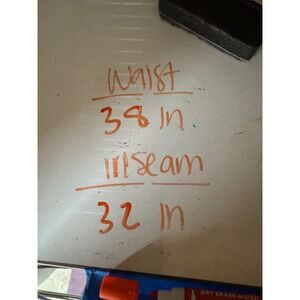 Waist
38 in
inseam
32 in
DRY ERASE